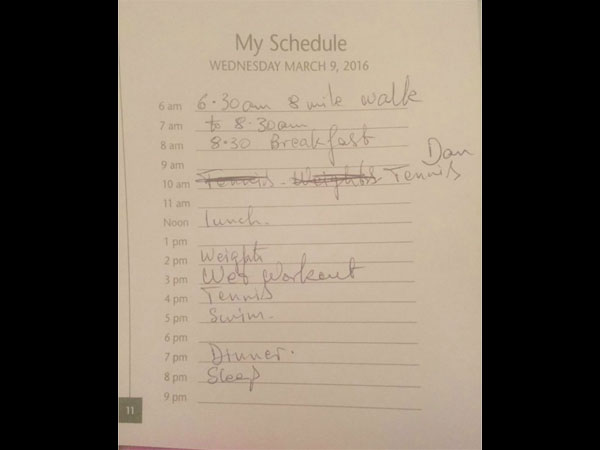 My Schedule
WEDNESDAY MARCH 9, 2016
6 am 6.30am 8 mile walk
7 am to 8.30am
8 am 8.30 Breakfast
9 am Dan
10 am Tennis - Weights Tennis
11 am
Noon lunch.
1 pm
2 pm Weights
3 pm Wet Workout
4 pm Tennis
5 pm Swim.
6 pm
7 pm Dinner.
8 pm Sleep
9 pm
11